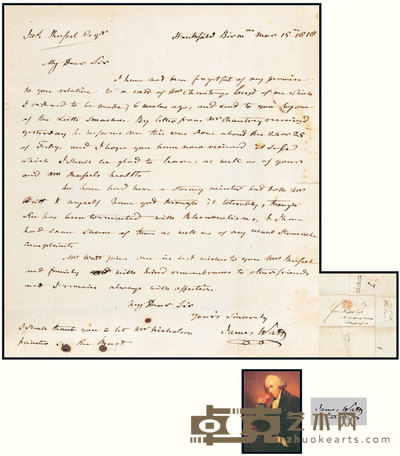 Heathfield Birm.m Mar 15th 1818
My Dear Sir
I have not been forgetful of my promise
to you relative to a cast of Mr Chantreys bust of me which
I ordered to be made 6 weeks ago, and sent to you by one
of the Leith Smacks. By letter from Mr Chantrey received
yesterday he informs me this was done about the 24 or 25
of Feby. and I hope you have now received it safe
which I shall be glad to learn, as well as of yours
and Mrs health
We have had here a stormy winter but both Mrs
Watt & myself have got through it tolerably, though
she has been tormented with Rheumatisms, & I have
had some share of them as well as of my usual Stomach
complaints
Mrs Watt joins me in best wishes to you Mrs
and family with kind remembrances to other friends
and I remain always with affection
My Dear Sir
Yours Sincerely
James Watt
I shall thank you to let Mr Nicholson
painter see the Bust
James Watt
卓克艺术网
zhuokearts.com